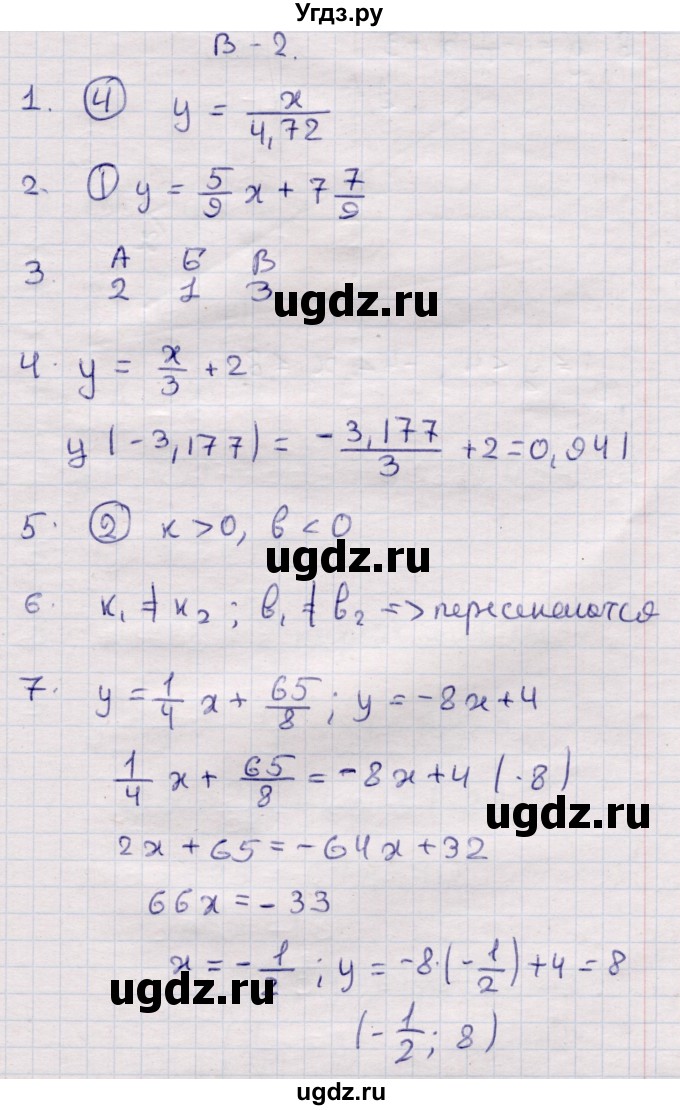 Угдз.ру
В - 2.
1. ④ y = x/4,72
2. ① y = 5/9 x + 7 7/9
3 А Б В
2 1 3
ugdz.ru
4. y = x/3 + 2
y(-3,177) = -3,177/3 + 2 = 0,941
5. ② к > 0, в < 0
ugdz.ru
6. к₁ ≠ к₂; в₁ ≠ в₂ => пересекаются
7. y = 1/4 x + 65/8; y = -8x + 4
1/4 x + 65/8 = -8x + 4 (·8)
ugdz.ru
2x + 65 = -64x + 32
66x = -33
x = -1/2; y = -8·(-1/2) + 4 = 8
ugdz.ru
(-1/2; 8)
ugdz.ru